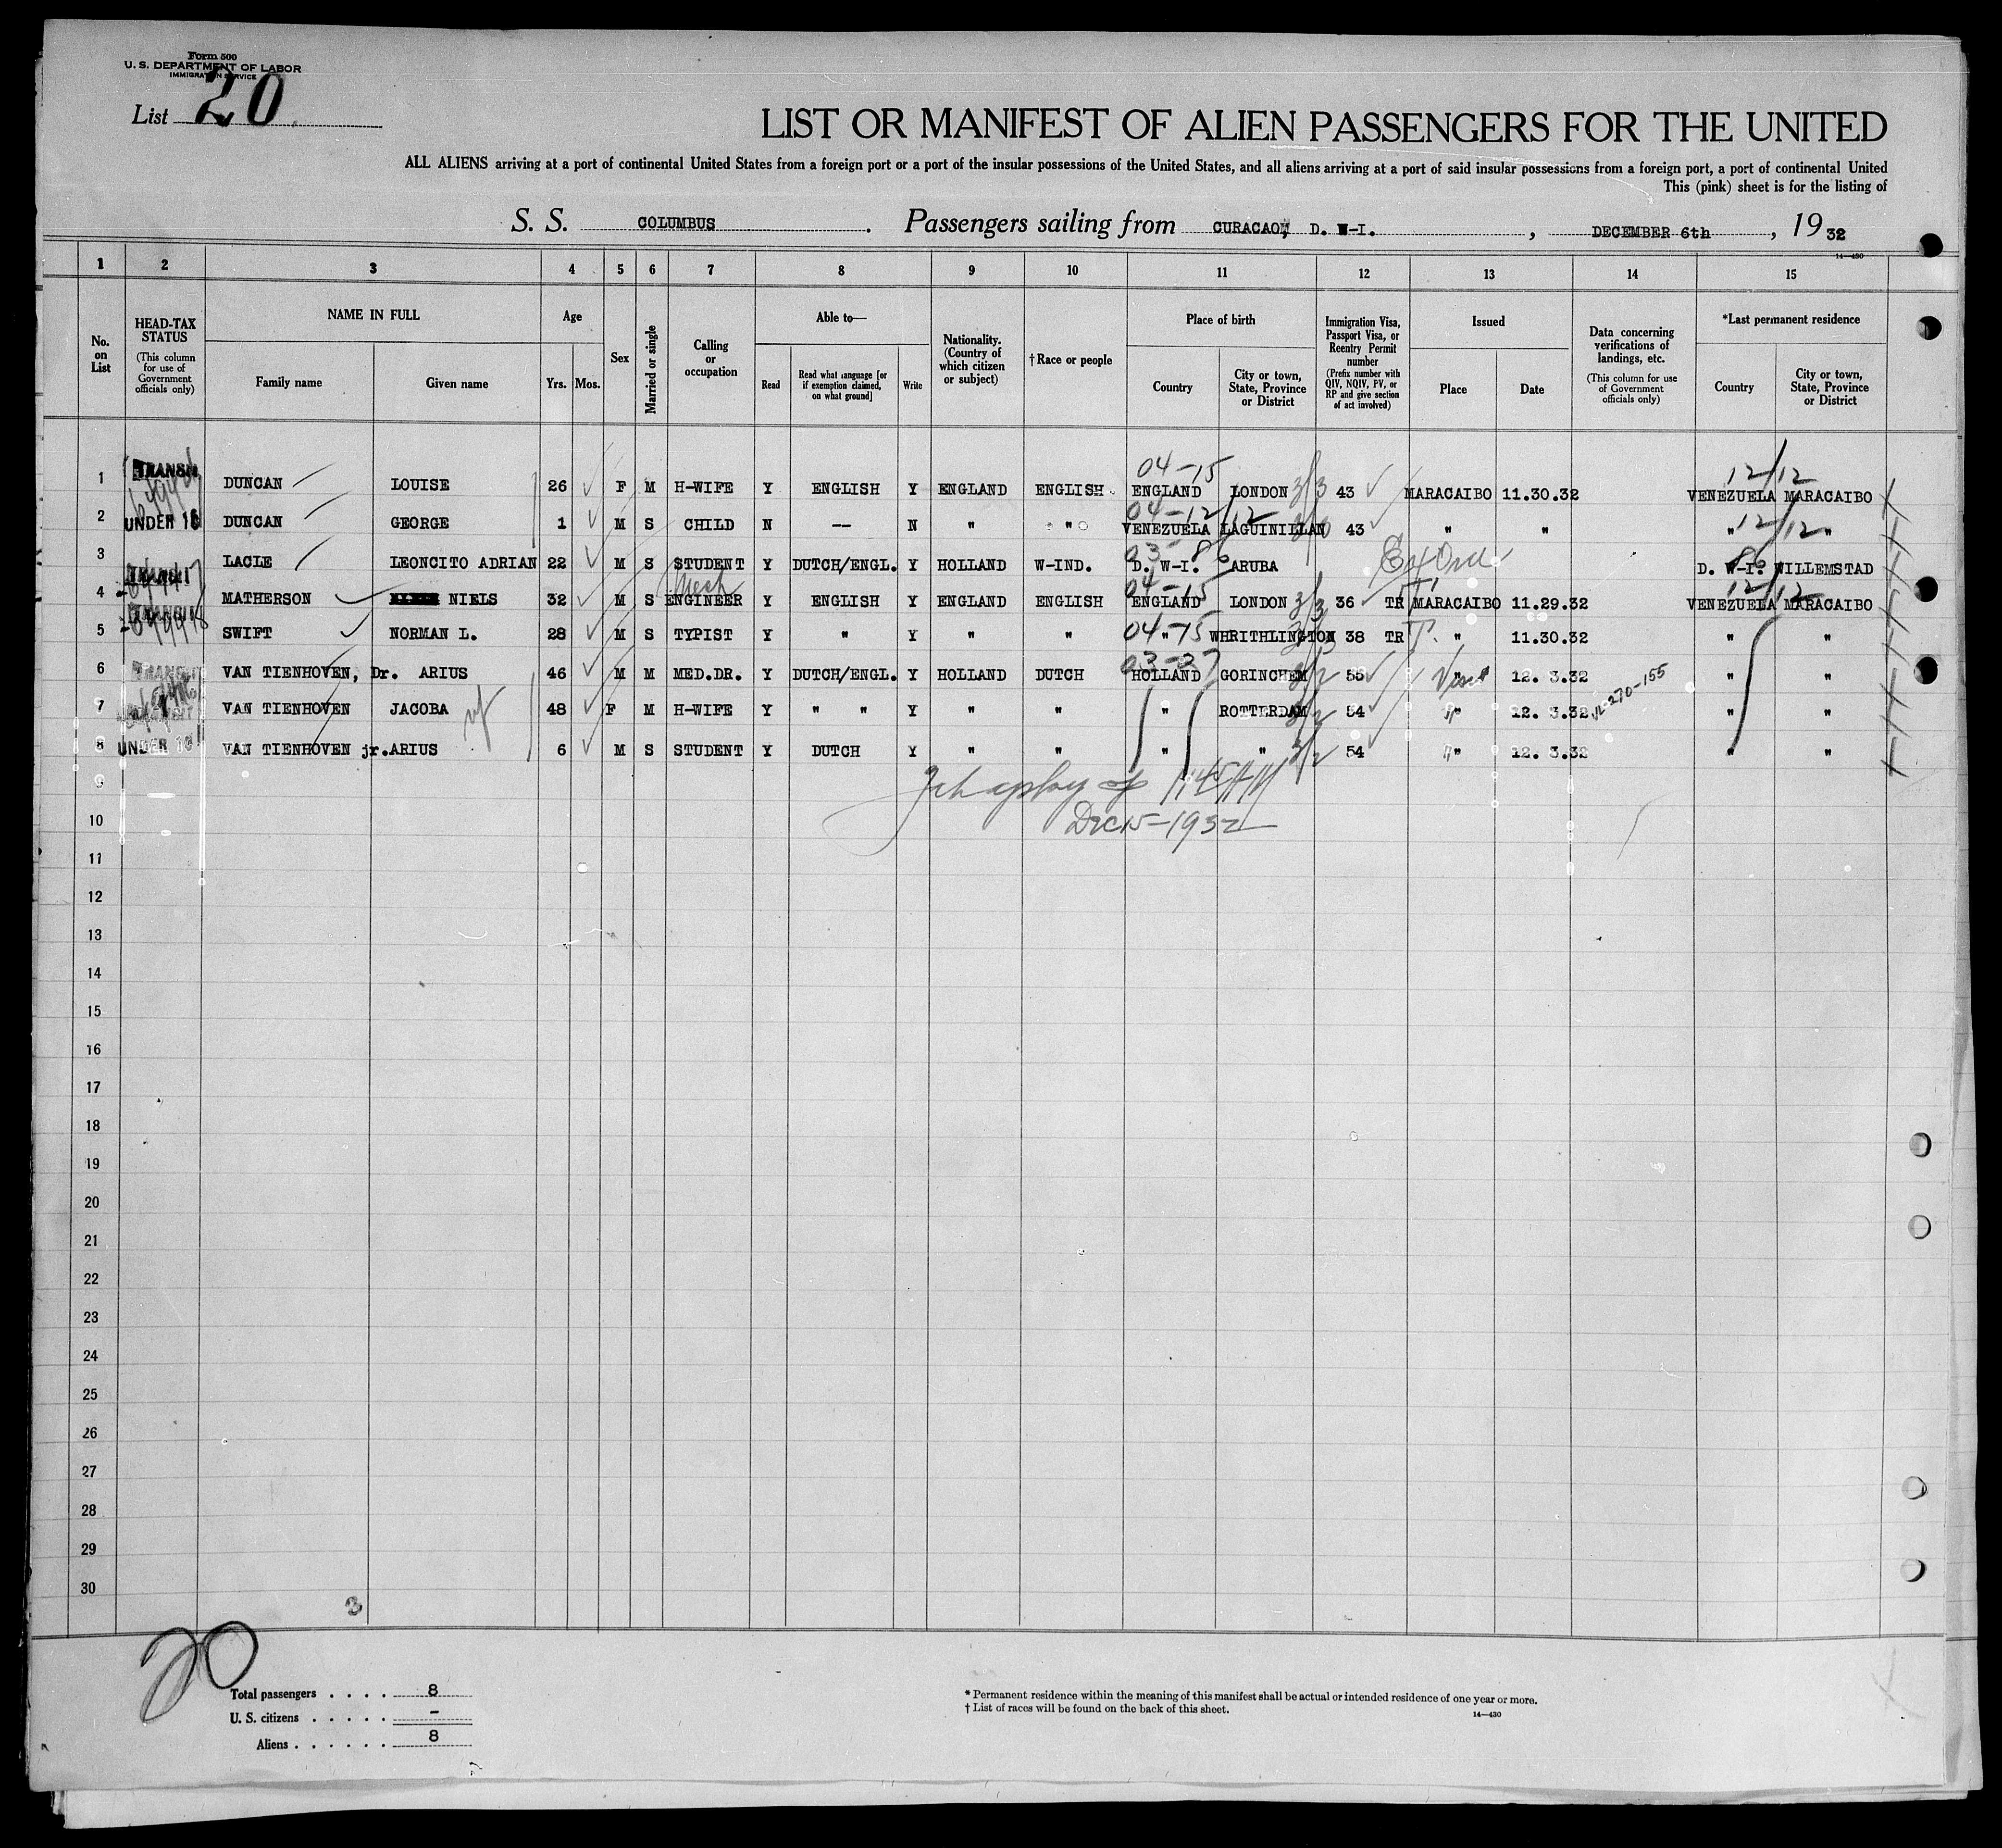 Form 500
U. S. DEPARTMENT OF LABOR
IMMIGRATION SERVICE
List 20
LIST OR MANIFEST OF ALIEN PASSENGERS FOR THE UNITED
ALL ALIENS arriving at a port of continental United States from a foreign port or a port of the insular possessions of the United States, and all aliens arriving at a port of said insular possessions from a foreign port, a port of continental United
This (pink) sheet is for the listing of
S. S. COLUMBUS. Passengers sailing from CURACAO, D. W-I., DECEMBER 6th, 1932
14—430
1 2 3 4 5 6 7 8 9 10 11 12 13 14 15
No. on List
HEAD-TAX STATUS (This column for use of Government officials only)
NAME IN FULL
Family name Given name
Age
Yrs. Mos.
Sex
Married or single
Calling or occupation
Able to—
Read Read what language [or if exemption claimed, on what ground] Write
Nationality. (Country of which citizen or subject)
†Race or people
Place of birth
Country City or town, State, Province or District
Immigration Visa, Passport Visa, or Reentry Permit number (Prefix number with QIV, NQIV, PV, or RP and give section of act involved)
Issued
Place Date
Data concerning verifications of landings, etc. (This column for use of Government officials only)
*Last permanent residence
Country City or town, State, Province or District
04-15 12/12
1 TRANSIT DUNCAN LOUISE 26 F M H-WIFE Y ENGLISH Y ENGLAND ENGLISH ENGLAND LONDON 3/3 43 MARACAIBO 11.30.32 VENEZUELA MARACAIBO
04-12/12 12/12
2 UNDER 16 DUNCAN GEORGE 1 M S CHILD N -- N " " VENEZUELA LAGUINILLAN 43 " " " "
03-8
3 LACLE LEONCITO ADRIAN 22 M S STUDENT Y DUTCH/ENGL. Y HOLLAND W-IND. D. W-I. ARUBA D. W-I. WILLEMSTAD
TRANSIT Mech 04-15 12/12
4 MATHERSON NIELS 32 M S ENGINEER Y ENGLISH Y ENGLAND ENGLISH ENGLAND LONDON 3/3 36 TR MARACAIBO 11.29.32 VENEZUELA MARACAIBO
TRANSIT
5 SWIFT NORMAN L. 28 M S TYPIST Y " Y " " " 04-15 WHRITHLINGTON 38 TR " 11.30.32 " "
03-27
6 TRANSIT VAN TIENHOVEN, Dr. ARIUS 46 M M MED.DR. Y DUTCH/ENGL. Y HOLLAND DUTCH HOLLAND GORINCHEM 3/2 55 " 12. 3.32 " "
7 VAN TIENHOVEN JACOBA 48 F M H-WIFE Y " " Y " " " ROTTERDAM 3/2 54 " 12. 3.32 " "
8 UNDER 16 VAN TIENHOVEN jr. ARIUS 6 M S STUDENT Y DUTCH Y " " " " 3/2 54 " 12. 3.32 " "
9
11:45 AM
10
Dec 15-1932
11
12
13
14
15
16
17
18
19
20
21
22
23
24
25
26
27
28
29
30
20
Total passengers . . . . 8
U. S. citizens . . . . . -
Aliens . . . . . . 8
* Permanent residence within the meaning of this manifest shall be actual or intended residence of one year or more.
† List of races will be found on the back of this sheet.
14—430